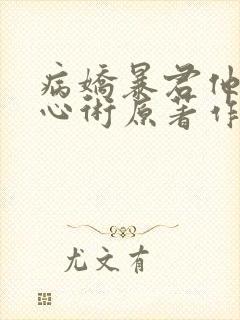 病嬌暴君他
心術原著作
尤文有